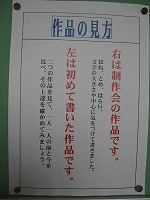 作品の見方
右は制作会の作品です。
はね、とめ、はらい、
文字の大きさや中心に気をつけて書きました。
左は初めて書いた作品です。
二つの作品を見て、一人一人の前と今を
比べ、その上達を確かめてみましょう。